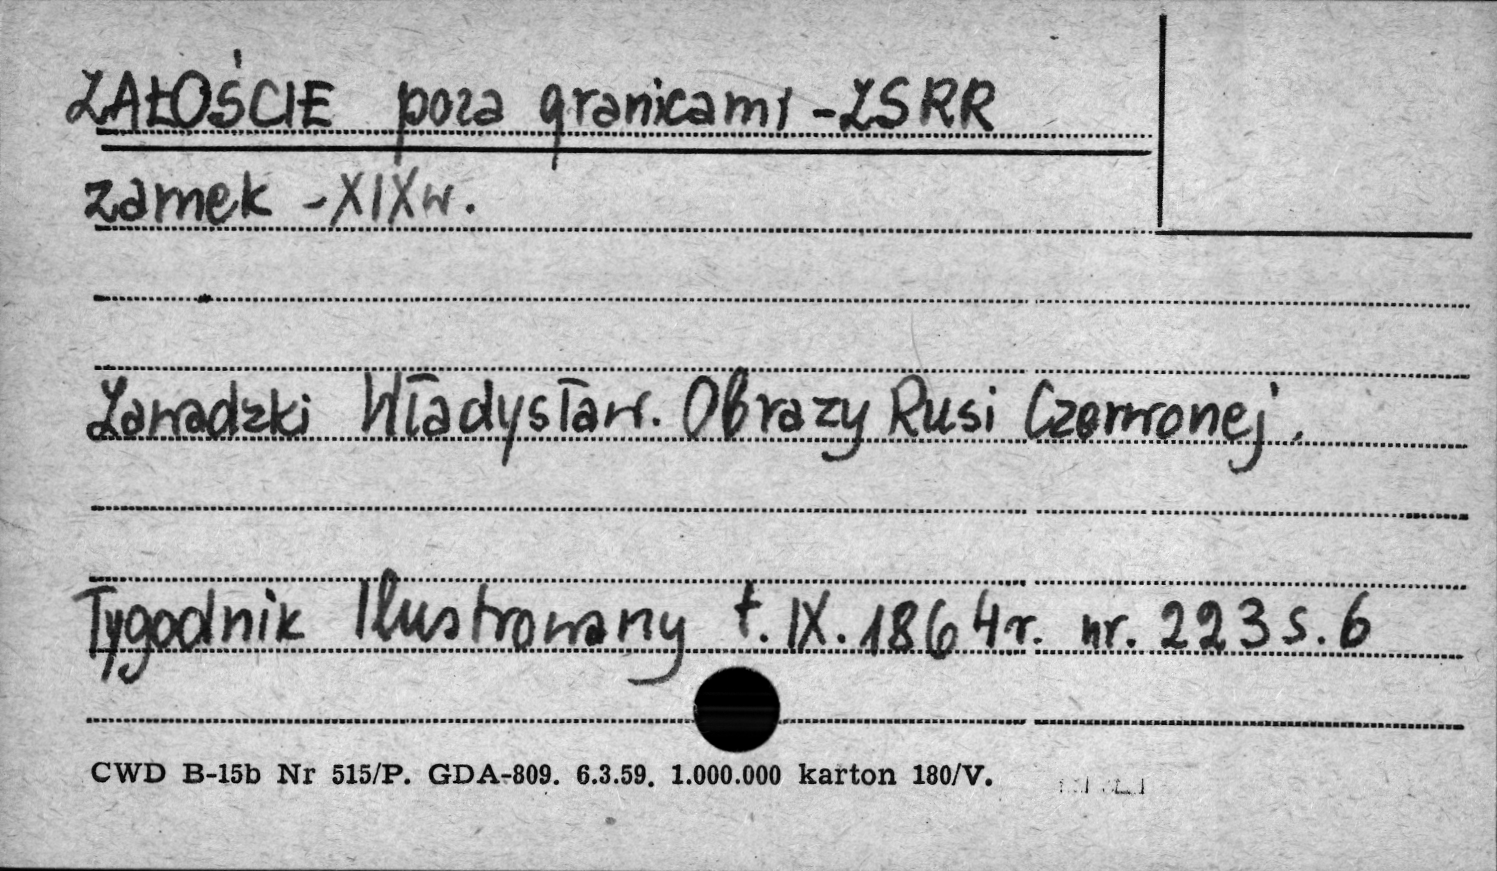 ZAŁOŚCIE poza granicami - ZSRR
zamek - XIX w.
Zawadzki Władysław. Obrazy Rusi Czerwonej.
Tygodnik Ilustrowany t. IX. 1864 r. nr. 223 s. 6
CWD B-15b Nr 515/P. GDA-809. 6.3.59. 1.000.000 karton 180/V.